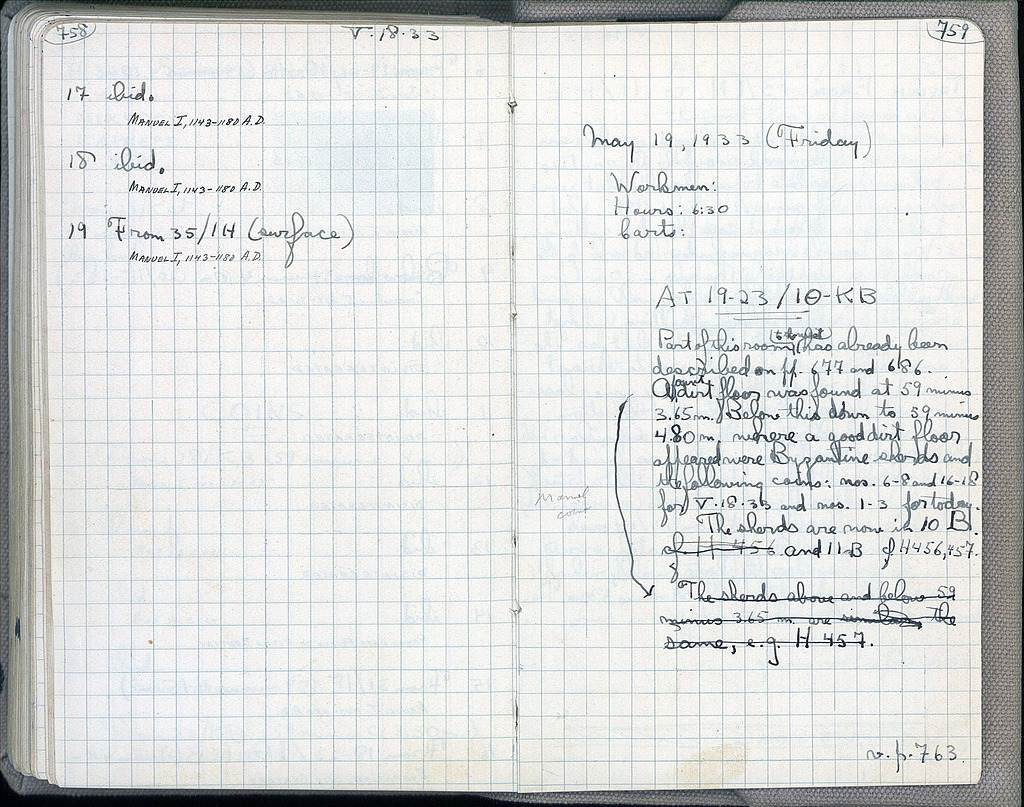 758
V.18.33
17 ibid.
MANUEL I, 1143-1180 A.D.
18 ibid.
MANUEL I, 1143-1180 A.D.
19 From 35/1H (surface)
MANUEL I, 1143-1180 A.D.
759
May 19, 1933 (Friday)
Workmen:
Hours: 6:30
Carts:
AT 19-23/10-KB
Part of this room has already been
described on pp. 677 and 686.
A faint dirt floor was found at 59 minus
3.65 m. Below this down to 59 minus
4.80 m. where a good dirt floor
appeared were Byzantine sherds and
the following coins: nos. 6-8 and 16-18
for V.18.33 and nos. 1-3 for today.
Manuel
coins
The sherds are now in 10 B.
cf. H 456 and 11-B cf H456,457.
The sherds above and below 59
minus 3.65 m. are similar, the
same, e.g. H 457.
v.p.763.